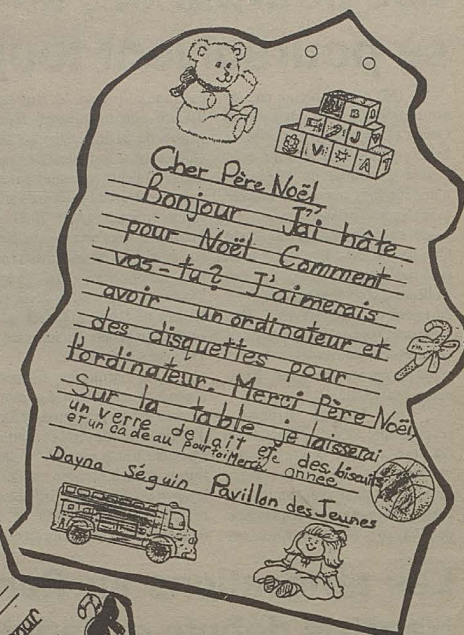 Cher Père Noël
Bonjour J'ai hâte
pour Noël Comment
vas-tu? J'aimerais
avoir un ordinateur et
des disquettes pour
l'ordinateur. Merci Père Noël,
Sur la table je laisserai
un verre de lait et des biscuits
et un cadeau pour toi Merci
année
Dayna Séguin Pavillon des Jeunes